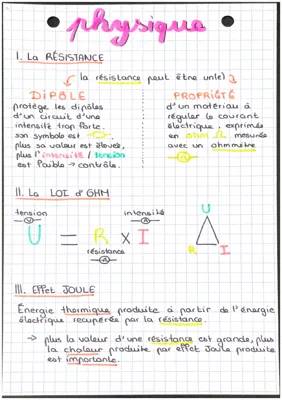 physique
I. La RÉSISTANCE
la résistance peut être un(e)
DIPÔLE
protège les dipôles
d'un circuit d'une
intensité trop forte.
son symbole est
plus sa valeur est élevée,
plus l'intensité / tension
est faible → contrôle.
PROPRIÉTÉ
d'un matériau à
réguler le courant
électrique. exprimée
en ohm Ω. mesurée
avec un ohmmètre
Ω
II. La LOI d'OHM
tension
V
intensité
A
U = R x I
résistance
Ω
U
R I
III. Effet JOULE
Énergie thermique produite à partir de l'énergie
électrique recupérée par la résistance.
→ plus la valeur d'une résistance est grande, plus
la chaleur produite par effet Joule produite
est importante.